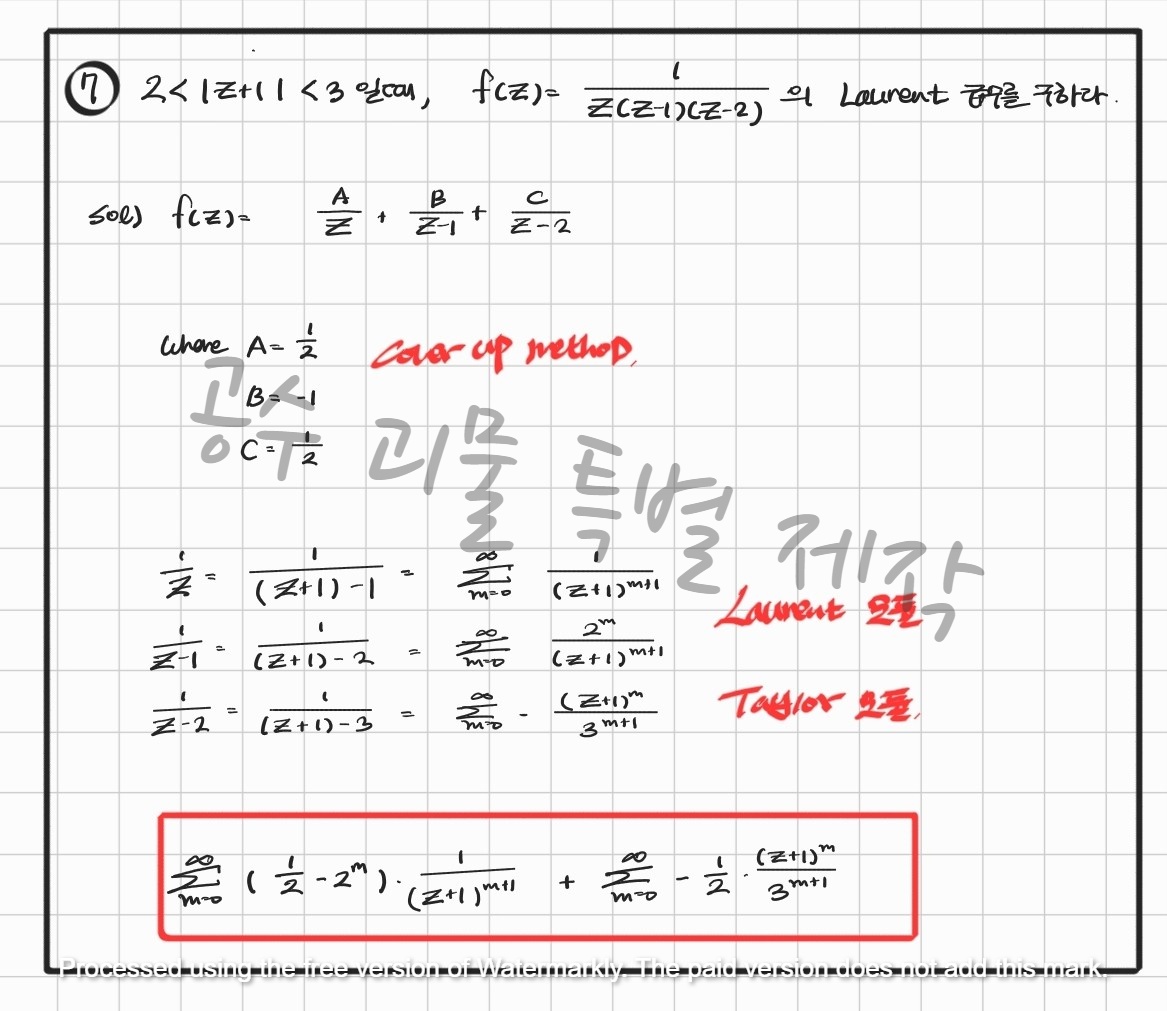 ⑦ 2 < |z+1| < 3 일때, f(z) = 1/(z(z-1)(z-2)) 의 Laurent 급수를 구하라.
sol) f(z) = A/z + B/(z-1) + C/(z-2)
where A = 1/2
Cover up method.
B = -1
C = 1/2
공수 괴물 특별 제작
1/z = 1/((z+1)-1) = ∑_{m=0}^{∞} 1/(z+1)^{m+1}
1/(z-1) = 1/((z+1)-2) = ∑_{m=0}^{∞} 2^m/(z+1)^{m+1}
Laurent 모듈
1/(z-2) = 1/((z+1)-3) = ∑_{m=0}^{∞} - (z+1)^m/3^{m+1}
Taylor 모듈.
∑_{m=0}^{∞} (1/2 - 2^m) · 1/(z+1)^{m+1} + ∑_{m=0}^{∞} - 1/2 · (z+1)^m/3^{m+1}
Processed using the free version of Watermarkly. The paid version does not add this mark.